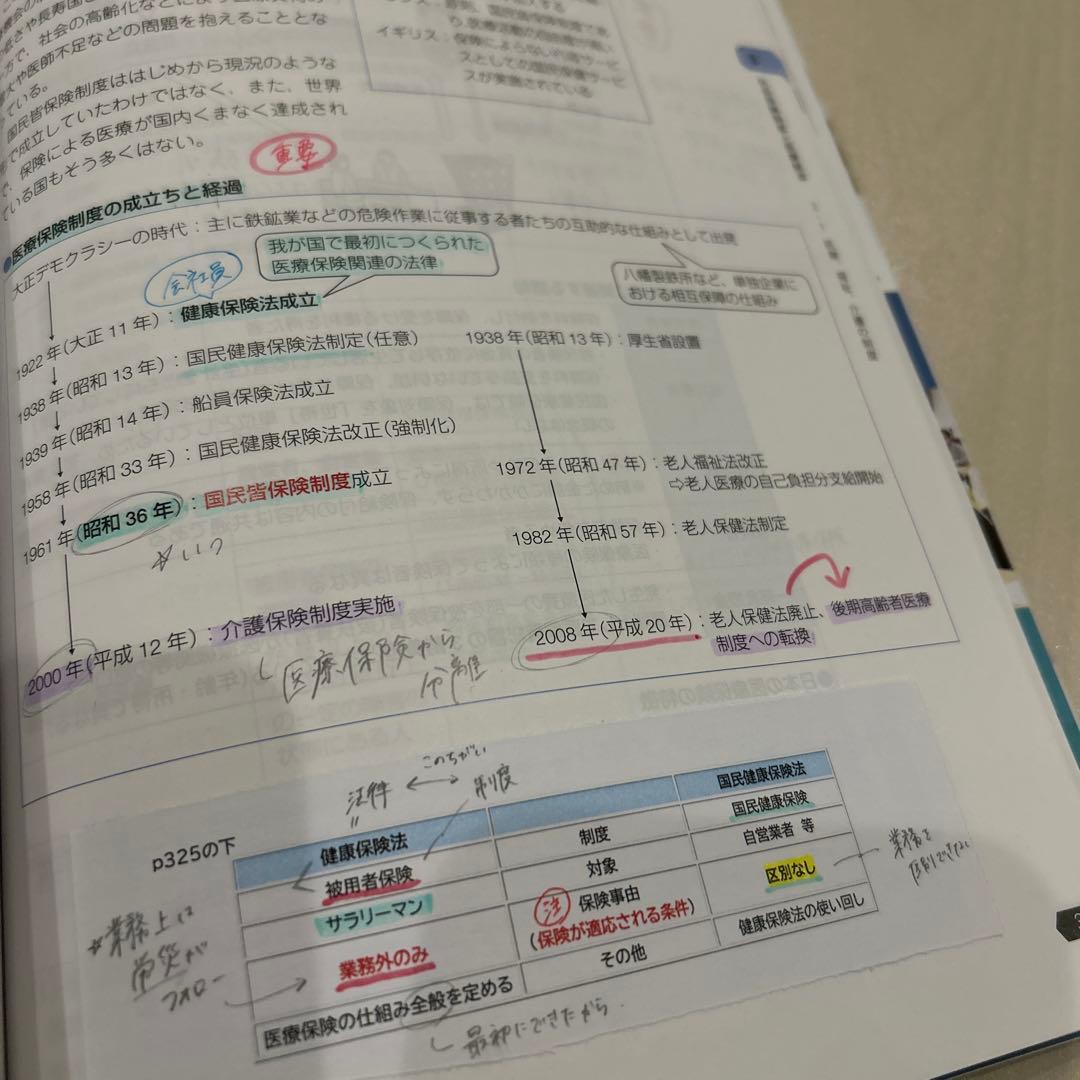 方で、社会の高齢化などによ
や医師不足などの問題を抱えることとな
ている。
国民皆保険制度ははじめから現況のような
で成立していたわけではなく、また、世界
で、保険による医療が国内くまなく達成され
ている国もそう多くはない。
イギリス：保険によらない
スとしての国民保健サービ
スが実施されている
重要
●医療保険制度の成立ちと経過
大正デモクラシーの時代：主に鉄鉱業などの危険作業に従事する者たちの互助的な仕組みとして出発
我が国で最初につくられた
医療保険関連の法律
八幡製鉄所など、単独企業に
おける相互保障の仕組み
会社員
1922年(大正11年)：健康保険法成立
1938年(昭和13年)：国民健康保険法制定(任意)
1938年(昭和13年)：厚生省設置
1939年(昭和14年)：船員保険法成立
1958年(昭和33年)：国民健康保険法改正(強制化)
1961年(昭和36年)：国民皆保険制度成立
1972年(昭和47年)：老人福祉法改正
⇨老人医療の自己負担分支給開始
1982年(昭和57年)：老人保健法制定
2000年(平成12年)：介護保険制度実施
医療保険から
分離
2008年(平成20年)：老人保健法廃止、後期高齢者医療
制度への転換
このちがい
法律 ⟷ 制度
p325の下
健康保険法
国民健康保険法
被用者保険
制度
国民健康保険
サラリーマン
対象
自営業者 等
業務外のみ
注 保険事由
(保険が適応される条件)
区別なし
医療保険の仕組み全般を定める
その他
健康保険法の使い回し
業務上は
労災が
フォロー
最初にできたから